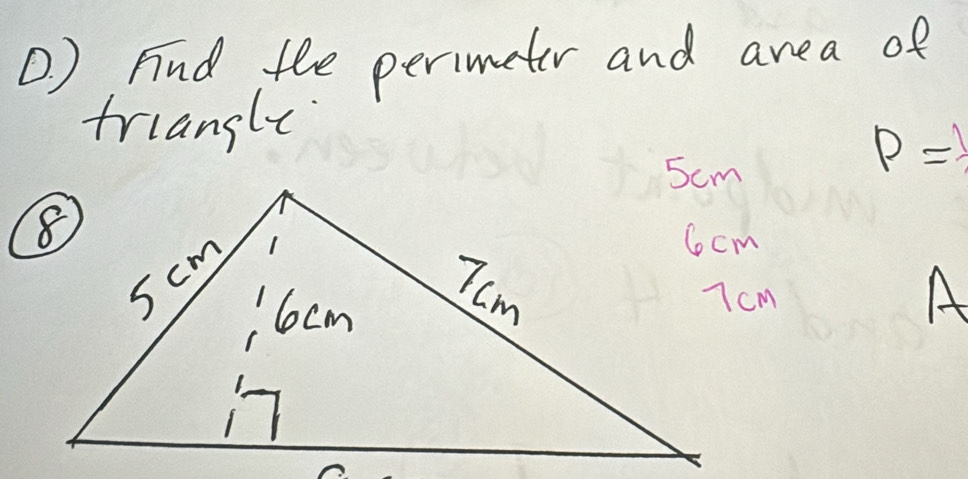 D.) Find the perimeter and area of
triangle
5cm
P =
8
6cm
5cm
7cm
7cm
6cm
A